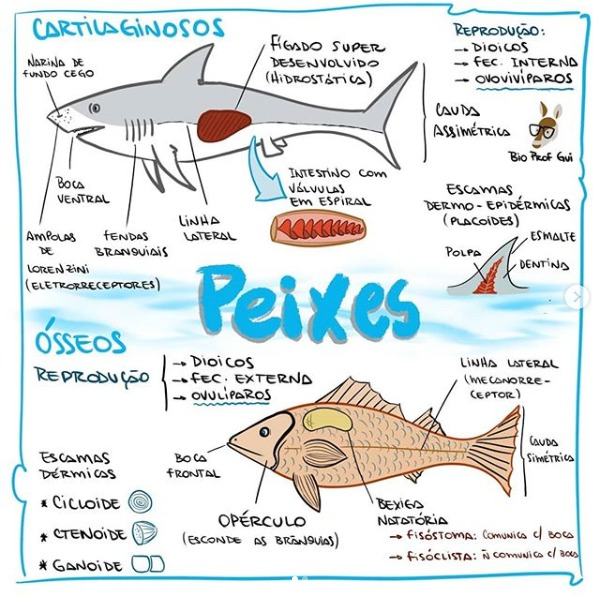 CARTILAGINOSOS
NARINA DE
FUNDO CEGO
FÍGADO SUPER
DESENVOLVIDO
(HIDROSTÁTICA)
REPRODUÇÃO:
→ DIOICOS
→ FEC. INTERNA
→ OVOVIVÍPAROS
CAUDA
ASSIMÉTRICA
Bio Prof Gui
BOCA
VENTRAL
AMPOLAS
DE
LORENZINI
(ELETRORRECEPTORES)
FENDAS
BRANQUIAIS
LINHA
LATERAL
INTESTINO COM
VÁLVULAS
EM ESPIRAL
ESCAMAS
DERMO-EPIDÉRMICAS
(PLACOIDES)
POLPA
ESMALTE
DENTINA
Peixes
ÓSSEOS
REPRODUÇÃO
→ DIOICOS
→ FEC. EXTERNA
→ OVULÍPAROS
LINHA LATERAL
(MECANORRE-
CEPTOR)
CAUDA
SIMÉTRICA
ESCAMAS
DÉRMICAS
* CICLOIDE
* CTENOIDE
* GANOIDE
BOCA
FRONTAL
OPÉRCULO
(ESCONDE AS BRÂNQUIAS)
BEXIGA
NATATÓRIA
→ FISÓSTOMA: COMUNICA C/ BOCA
→ FISÓCLISTA: Ñ COMUNICA C/ BOCA